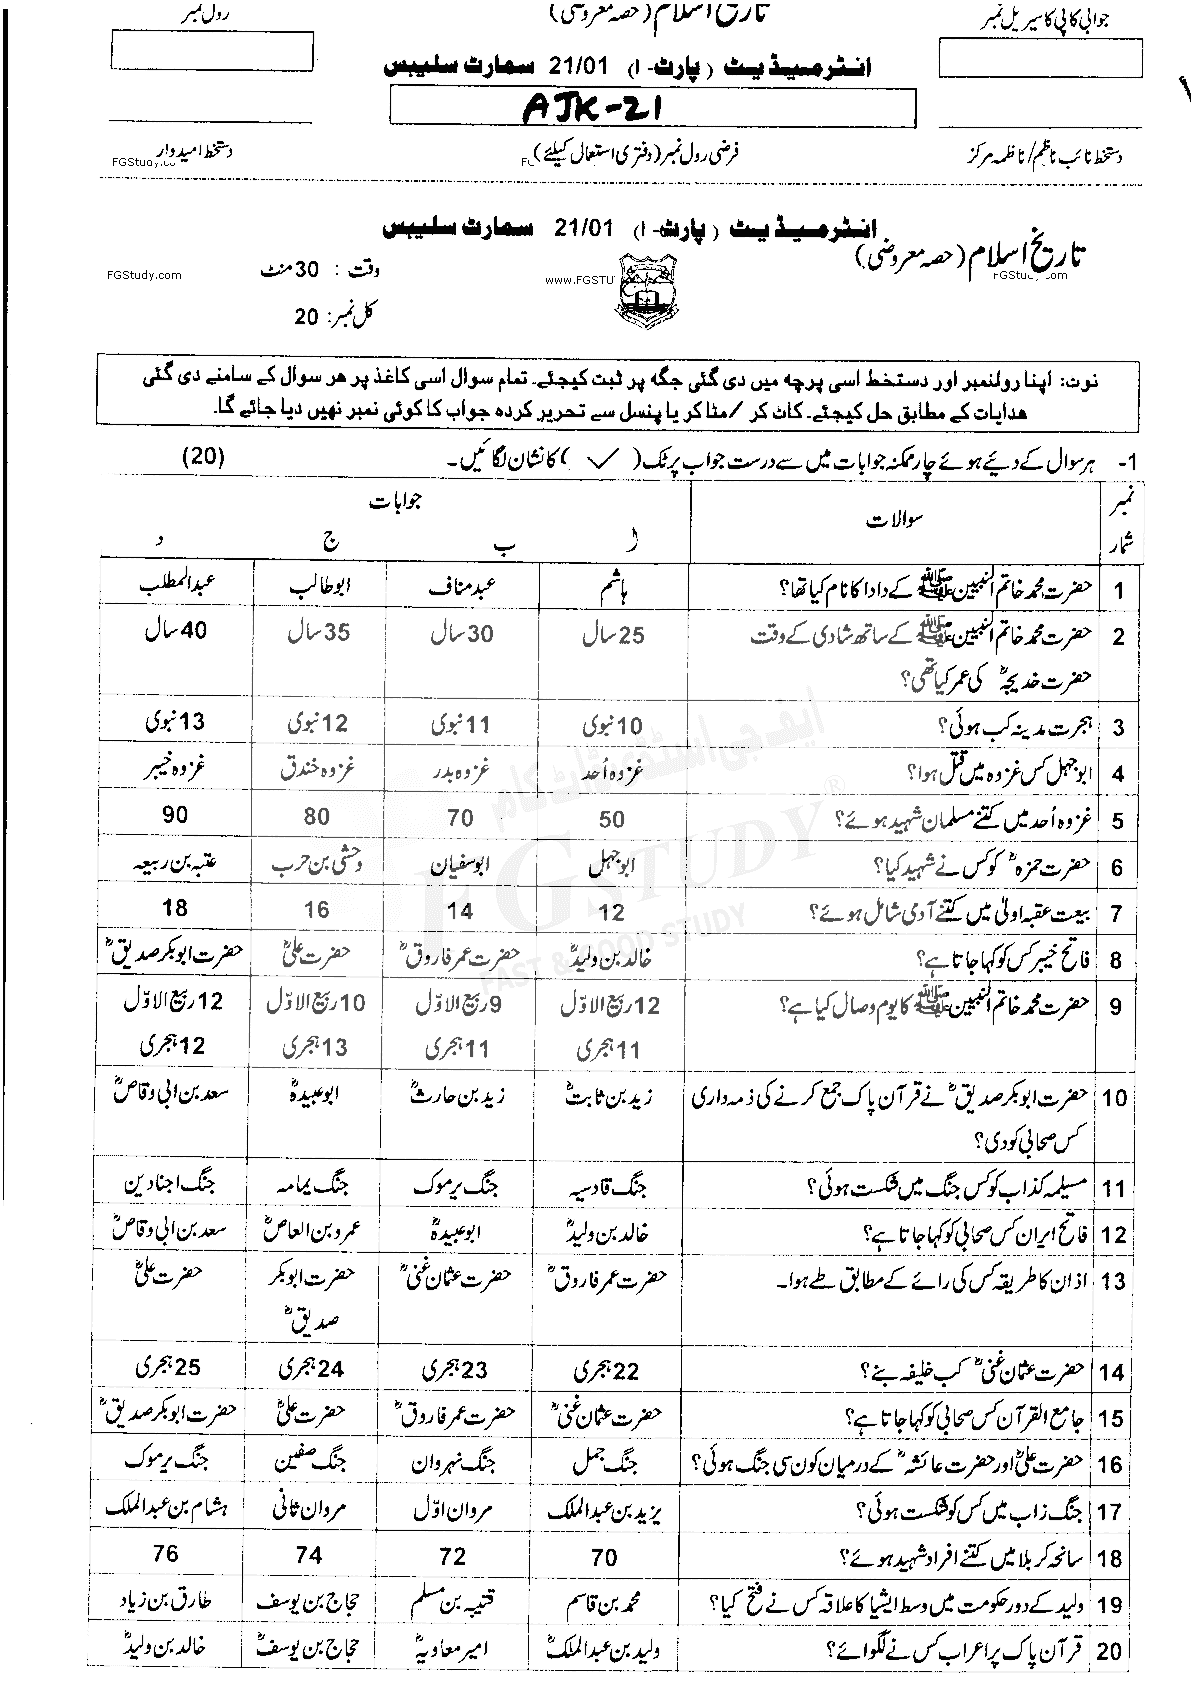 رول نمبر
تاریخ اسلام (حصہ معروضی)
جوابی کاپی کا سیریل نمبر
انٹرمیڈیٹ (پارٹ-I) 21/01 سمارٹ سلیبس
AJK-21
دستخط نائب ناظم/ناظمہ مرکز
فرضی رول نمبر (دفتری استعمال کیلئے)
دستخط امیدوار
FGStudy.co
انٹرمیڈیٹ (پارٹ-I) 21/01 سمارٹ سلیبس
تاریخ اسلام (حصہ معروضی)
وقت : 30 منٹ
FGStudy.com
www.FGSTU
کل نمبر: 20
نوٹ: اپنا رولنمبر اور دستخط اسی پرچہ میں دی گئی جگہ پر ثبت کیجئے۔ تمام سوال اسی کاغذ پر ھر سوال کے سامنے دی گئی
ھدایات کے مطابق حل کیجئے۔ کاٹ کر/مٹا کر یا پنسل سے تحریر کردہ جواب کا کوئی نمبر نھیں دیا جائے گا۔
1- ہر سوال کے دیئے ہوئے چار ممکنہ جوابات میں سے درست جواب پر ٹک (✓) کا نشان لگائیں۔ (20)
نمبر شمار سوالات جوابات
ا ب ج د
1 حضرت محمد خاتم النبیین ﷺ کے دادا کا نام کیا تھا؟ ہاشم عبد مناف ابو طالب عبدالمطلب
2 حضرت محمد خاتم النبیین ﷺ کے ساتھ شادی کے وقت 25 سال 30 سال 35 سال 40 سال
حضرت خدیجہؓ کی عمر کیا تھی؟
3 ہجرت مدینہ کب ہوئی؟ 10 نبوی 11 نبوی 12 نبوی 13 نبوی
4 ابو جہل کس غزوہ میں قتل ہوا؟ غزوہ اُحد غزوہ بدر غزوہ خندق غزوہ خیبر
5 غزوہ اُحد میں کتنے مسلمان شہید ہوئے؟ 50 70 80 90
6 حضرت حمزہؓ کو کس نے شہید کیا؟ ابو جہل ابو سفیان وحشی بن حرب عتبہ بن ربیعہ
7 بیعت عقبہ اولیٰ میں کتنے آدمی شامل ہوئے؟ 12 14 16 18
8 فاتح خیبر کس کو کہا جاتا ہے؟ خالد بن ولیدؓ حضرت عمر فاروقؓ حضرت علیؓ حضرت ابوبکر صدیقؓ
9 حضرت محمد خاتم النبیین ﷺ کا یوم وصال کیا ہے؟ 12 ربیع الاوّل 9 ربیع الاوّل 10 ربیع الاوّل 12 ربیع الاوّل
11 ہجری 11 ہجری 13 ہجری 12 ہجری
10 حضرت ابوبکر صدیقؓ نے قرآن پاک جمع کرنے کی ذمہ داری زید بن ثابتؓ زید بن حارثؓ ابو عبیدہؓ سعد بن ابی وقاصؓ
کس صحابی کو دی؟
11 مسیلمہ کذاب کو کس جنگ میں شکست ہوئی؟ جنگ قادسیہ جنگ یرموک جنگ یمامہ جنگ اجنادین
12 فاتح ایران کس صحابی کو کہا جاتا ہے؟ خالد بن ولیدؓ ابو عبیدہؓ عمرو بن العاصؓ سعد بن ابی وقاصؓ
13 اذان کا طریقہ کس کی رائے کے مطابق طے ہوا۔ حضرت عمر فاروقؓ حضرت عثمان غنیؓ حضرت ابوبکر حضرت علیؓ
صدیقؓ
14 حضرت عثمان غنیؓ کب خلیفہ بنے؟ 22 ہجری 23 ہجری 24 ہجری 25 ہجری
15 جامع القرآن کس صحابی کو کہا جاتا ہے؟ حضرت عثمان غنیؓ حضرت عمر فاروقؓ حضرت علیؓ حضرت ابوبکر صدیقؓ
16 حضرت علیؓ اور حضرت عائشہؓ کے درمیان کون سی جنگ ہوئی؟ جنگ جمل جنگ نہروان جنگ صفین جنگ یرموک
17 جنگ زاب میں کس کو شکست ہوئی؟ یزید بن عبدالملک مروان اوّل مروان ثانی ہشام بن عبدالملک
18 سانحہ کربلا میں کتنے افراد شہید ہوئے؟ 70 72 74 76
19 ولید کے دور حکومت میں وسط ایشیا کا علاقہ کس نے فتح کیا؟ محمد بن قاسم قتیبہ بن مسلم حجاج بن یوسف طارق بن زیاد
20 قرآن پاک پر اعراب کس نے لگوائے؟ ولید بن عبدالملکؓ امیر معاویہؓ حجاج بن یوسفؓ خالد بن ولیدؓ
ایف جی اسٹڈی ڈاٹ کام
FGSTUDY®
FAST & GOOD STUDY